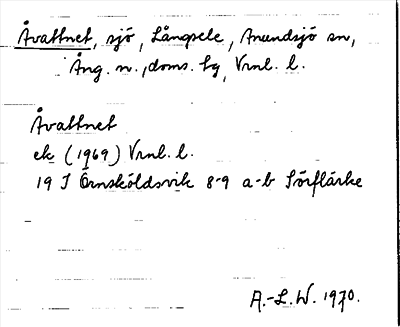 Åvattnet, sjö, Långsele, Anundsjö sn,
Ång. n., doms. tg, Vrnl. l.
Åvattnet
ek (1969) Vrnl. l.
19 I Örnsköldsvik 8-9 a-b Sörflärke
A.-L.W. 1970.